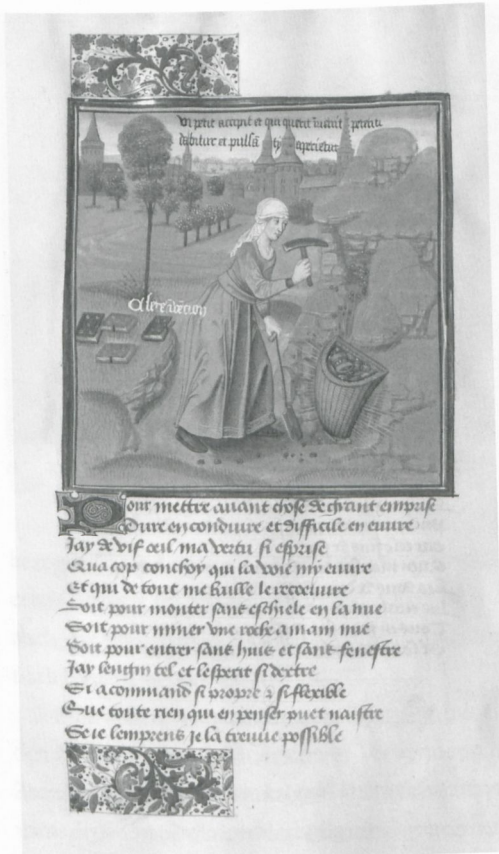 Qui petit accipit et qui querit invenit
Pour mettre avant chose de grant emprise
Dure en conduire et difficile en euvre
Jay de vif oeil ma vertu si esprise
Qua cop conchoy qui la voie my euvre
Et qui de tout me baille le recoeuvre
Soit pour monter sans eschiele en la nue
Soit pour miner une roche a main nue
Soit pour entrer sans huis et sans fenestre
Jay lengin tel et lesperit si dextre
Si a command si propre et si flexible
Que toute rien qui en penser puet naistre
Se je lemprens je la treuve possible